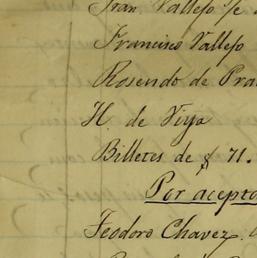 Juan Vallejo
Francisco Vallejo
Rosendo de Pra
H. de Viya
Billetes de $ 71.
Por acepto
Teodoro Chavez.